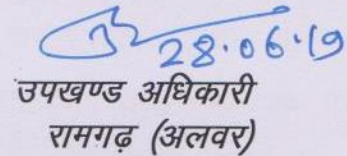 28.06.19
उपखण्ड अधिकारी
रामगढ़ (अलवर)